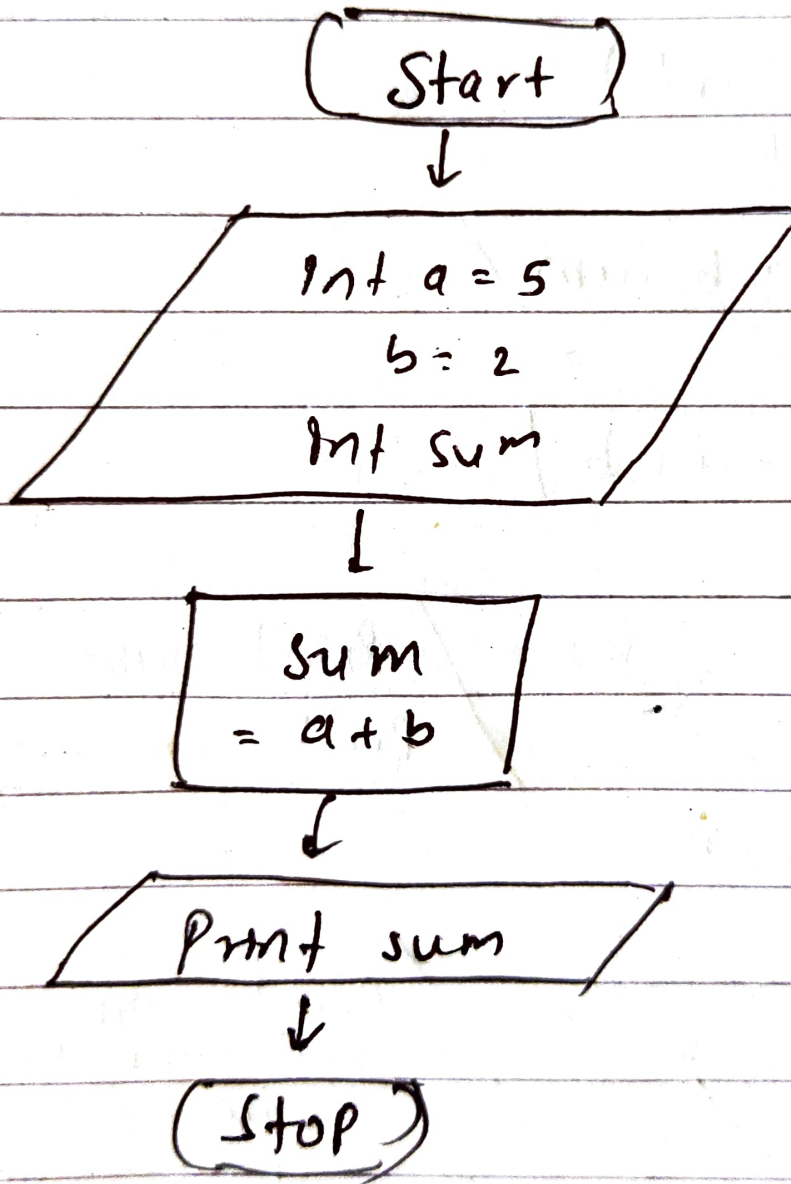 Start
Int a = 5
b = 2
Int sum
sum
= a + b
Print sum
Stop